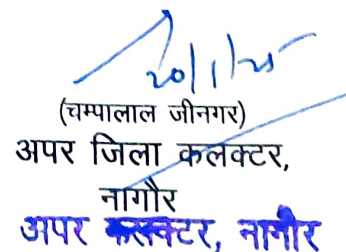 20/1/25
(चम्पालाल जीनगर)
अपर जिला कलक्टर,
नागौर
अपर कलक्टर, नागौर